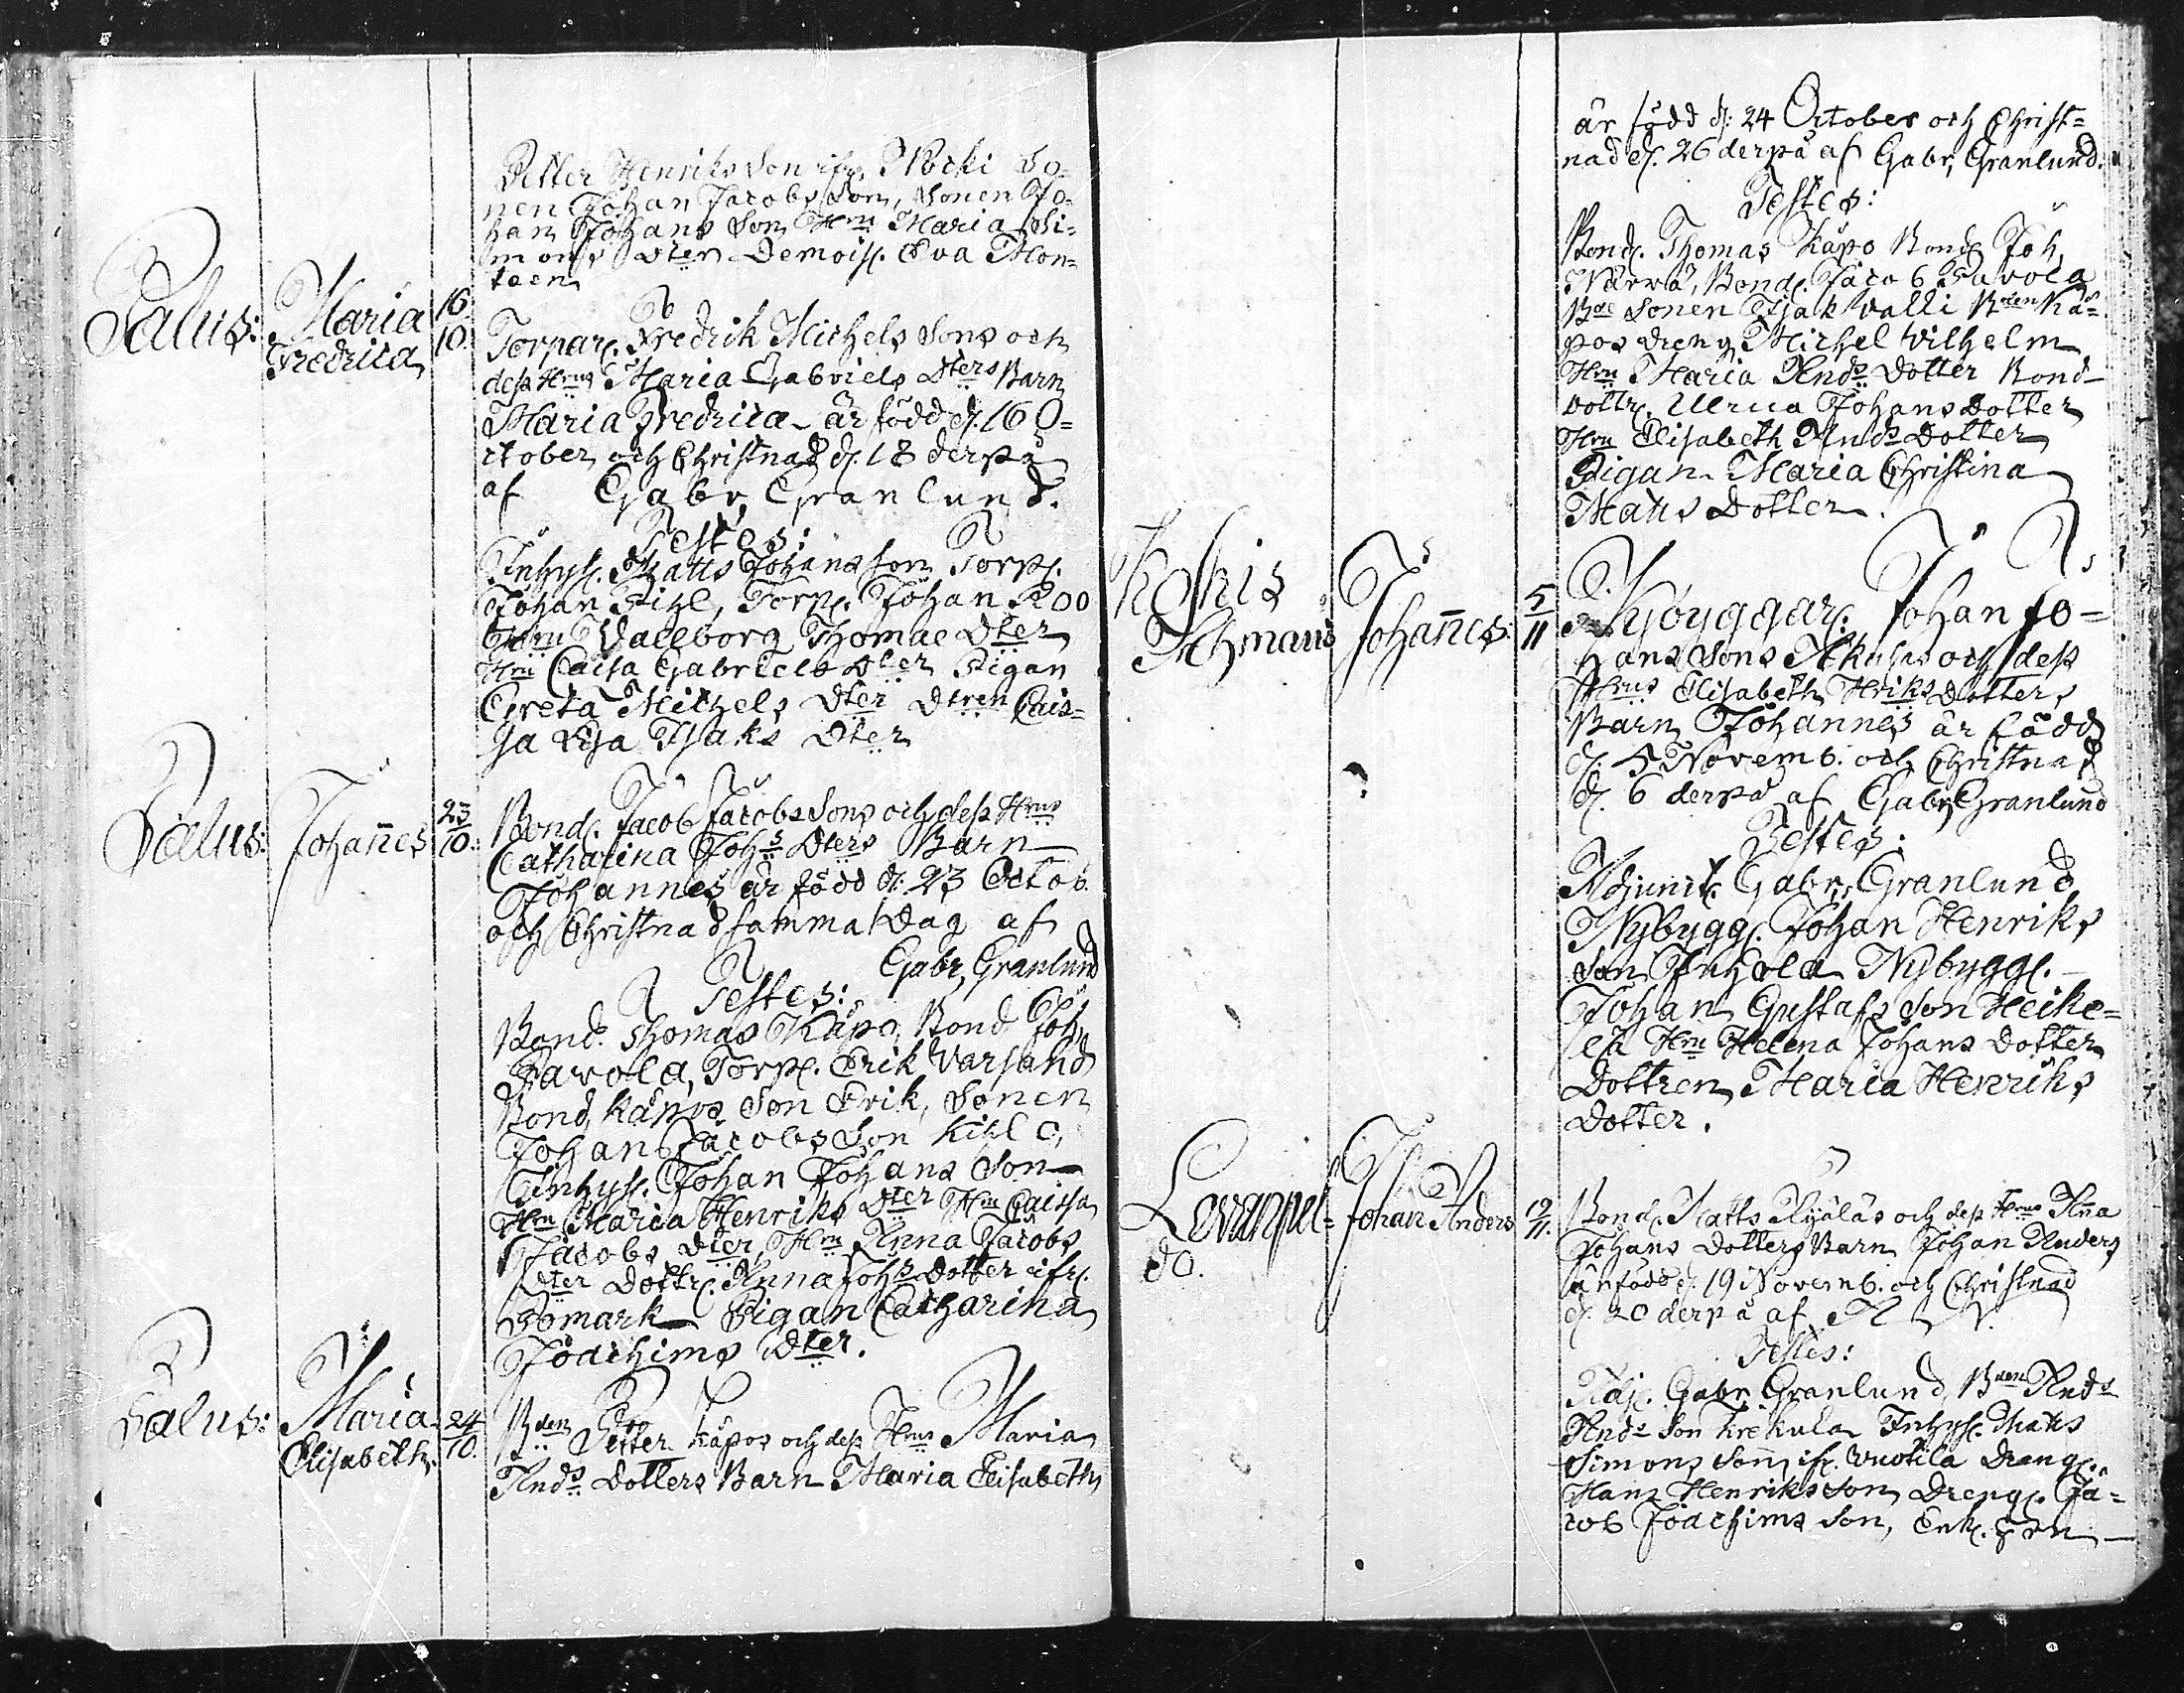 Petter Henriks Son ifr. Nocki So=
nen Johan Jacobs Son, Sonen Jo=
han Johans Son Hru Maria Si=
mons Dter Demois. Eva Mon=
teen
Salus: Maria 16
Fredrica 10.
Torpar. Fredrik Michels Sons och
dess Hrus Maria Gabriels Dters Barn
Maria Fredrica är född d. 16 O=
ctober och Christnad d. 18 derpå
af Gabr, Granlund.
Testes:
Inhys. Matts Johans son Torp.
Johan Pihl, Torp. Johan Roo
Hru Vallborg Thomae Dter
Hru Caisa Gabriels Dter Pigan
Greta Michels Dter Dtren Cai=
sa Lisa Isaks Dter
Salus: Johannes 23
10.
Bond. Jacob Jacobs Sons och dess Hrus
Catharina Johs Dters Barn
Johannes är född d: 23 Octob.
och Christnad samma Dag af
Gabr, Granlund
Testes:
Bond. Thomas Käpo, Bond Joh,
Savola, Torp. Erik Varsand
Bond, Käpos Son Erik, Sonen
Johan Jacobs Son Kihlo,
Inhys. Johan Johans Son
Hru Maria Henriks Dter Hru Caisa
Jacobs Dter, Hru Anna Jacobs
Dter Dottr. Anna Johs Dotter ifr.
Pigan Catharina
Joachims Dter.
Salus: Maria 24
Elisabeth. 10.
Bden Petter Käpos och dess Hrus Maria
Ands Dotters Barn Maria Elisabeth
är född d: 24 October och Christ=
nad d. 26 derpå af Gabr, Granlund.
Testes:
Bond. Thomas Käpo Bond Joh,
Närvä, Bond. Jacob Savola
Bde Sonen Isak Valli Bden Kä=
pos dreng Michel Vilhelm
Hru Maria Ands Dotter Bond
dottr. Ulrica Johans Dotter
Hru Elisabeth Ands Dotter
Pigan Maria Christina
Matts Dotter.
Johannes: 5
11
Johan Jo=
hans Sons och dess
Hrus Elisabeth Hriks Dotters
Barn Johannes är född
d. 5 Novemb. och Christnad
d. 6 derpå af Gabr, Granlund
Testes:
Adjunct. Gabr, Granlund
Nybygg. Johan Henriks
Son Nybygg.
Johan Gustafs Son Heike=
lä Hru Helena Johans Dotter
Dottren Maria Henriks
Dotter.
Levänpel= Johan Anders 19
do. 11.
Bond. Matts och dess Hrus Ana
Johans Dotters Barn Johan Anders
är född d. 19 Novemb. och Christnad
d. 20 derpå af
Testes:
Adj. Gabr, Granlund, Bden Ands
Ands Son Krekula Inhys. Matts
Simons Son, ifr. Vuotila Dreng.
Hans Henriks son Dreng. Ja=
cob Joachims Son, Enk. Fru